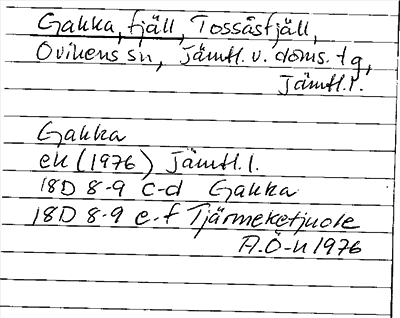 Gakka, fjäll, Tossåsfjäll,
Ovikens sn, Jämtl. v. doms. tg,
Jämtl. l.
Gakka
ek (1976) Jämtl. l.
18D 8-9 c-d Gakka
18D 8-9 e-f Tjärmeketjuole
A.Ö-n 1976